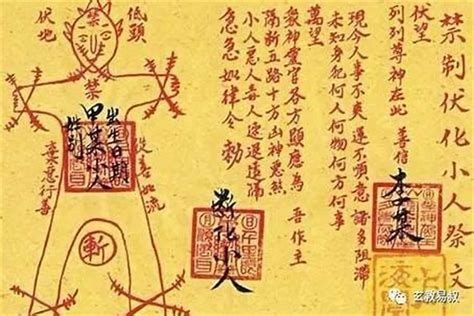 禁制伏化小人祭文
伏望
列列尊神在此 善信
李某
現今人事不爽運不順意諸多阻滯
未知身犯何人何物何方何事
萬望 吾作主
眾神靈官各方顯應為
隔斷五路十方凶神惡煞
小人惡人毒人
急急如律令 勅
斷化小人
低頭
伏地
禁
禁
出生日期
甲某小人
性別
從善如流
棄惡行善
斬
玄教易叔